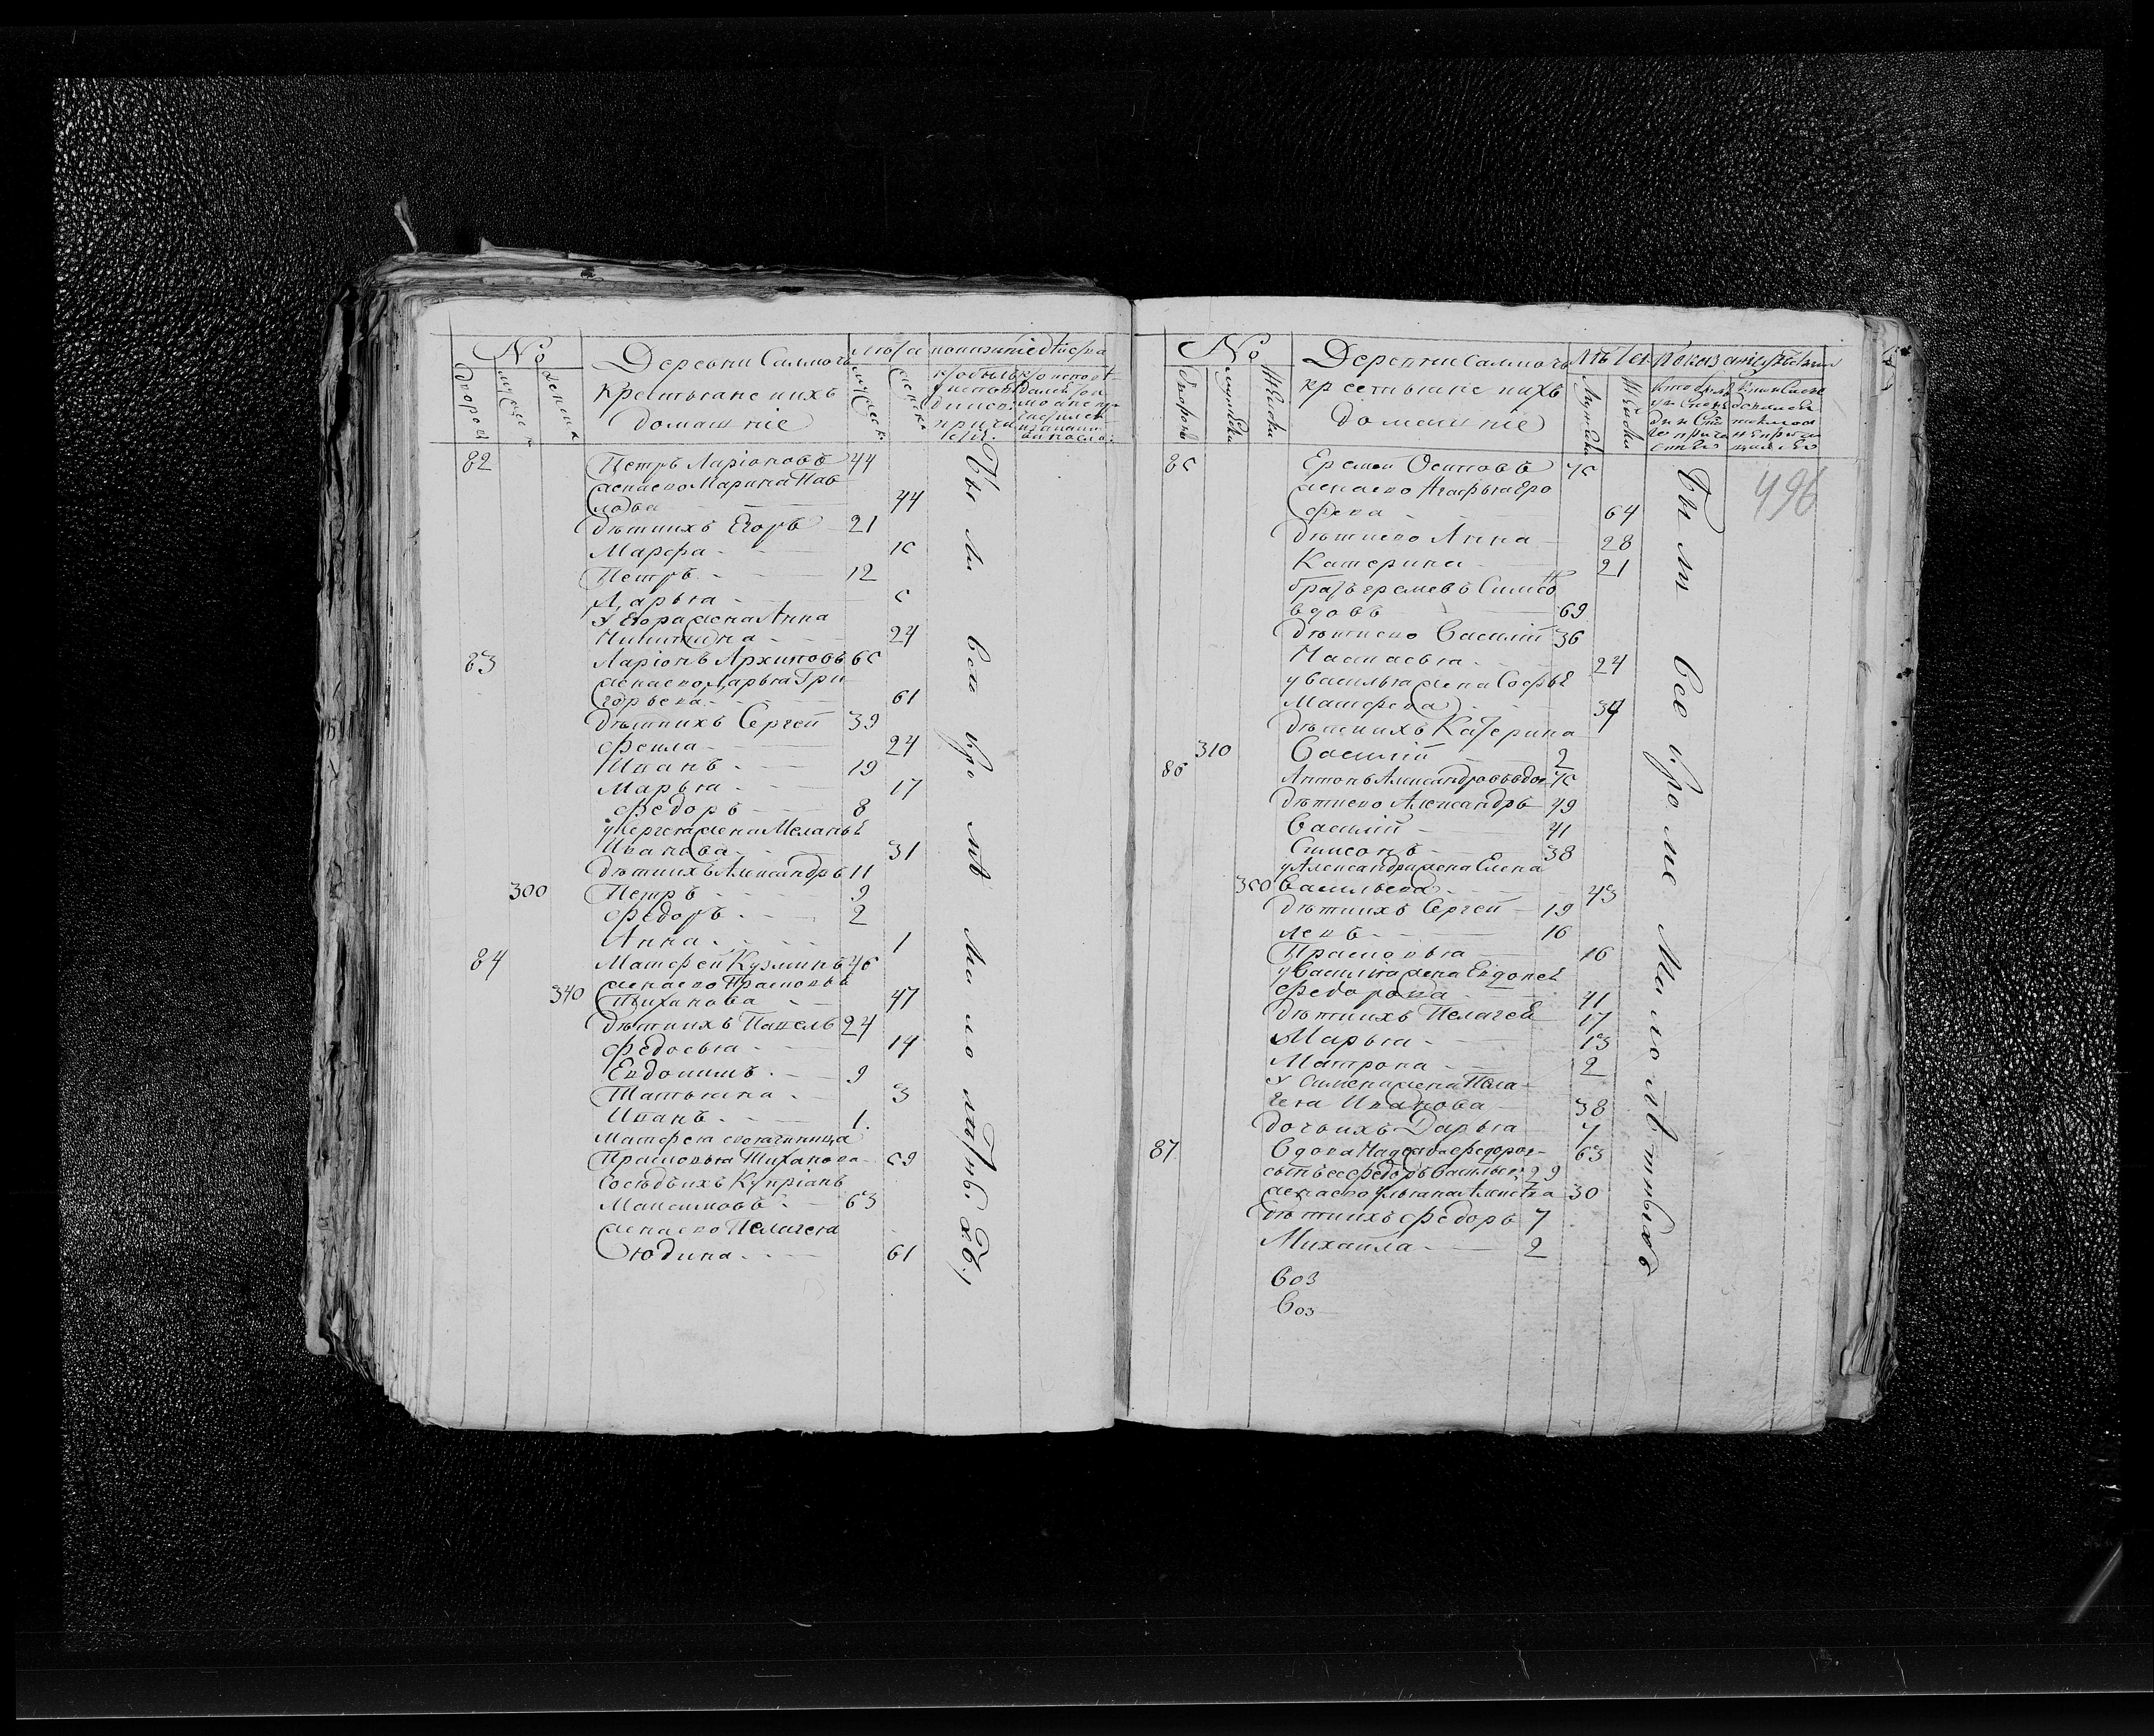 №
Деревни Салмачь
Крестьяне ихъ
домашніе
дворов
мужеск
женска
82 Петръ Ларіоновъ 44
жена его Марина Пав
лова 44
дѣти ихъ Егоръ 21
Марфа 15
Петръ 12
Дарья 5
у Егора жена Анна
Никитина 24
83 Ларіонъ Архиповъ 65
жена его Дарья Гри
горьева 61
дѣти ихъ Сергей 39
Фекла 24
Иванъ 19
Марья 17
Федоръ 8
у Сергея жена Меланьѣ
Иванова 31
дѣти ихъ Александръ 11
300 Петръ 9
Федоръ 2
Анна 1
84 Матфей Кузминъ 46
жена его Прасковья
340 Тиханова 47
дѣти ихъ Павелъ 24
Федосья 14
Евдокимъ 9
Татьяна 3
Иванъ 1
Матфея своячиница
Прасковья Тиханова 59
Сосѣдъ ихъ Купріянъ
Максимовъ 63
жена его Пелагея
Юдина 61
Бы ли всѣ кро мѣ
№
Деревни Салмачь
крестьяне ихъ
домашніе
Лѣта
496
85 Еремей Осиповъ 75
жена его Агафья Еро
феева 64
дѣти его Анна 28
Катерина 21
братъ еремевъ Симео
вдовъ 69
дѣти его Василій 36
Настасья 24
у Василья жена Софьѣ
Матфева 34
дѣти ихъ Катерина
310 Василій 2
86 Антонъ Александровъ вдов 75
дѣти его Александръ 49
Василій 41
Симеонъ 38
у Александра жена Елена
350 Васильева 43
дѣти ихъ Сергей 19
левъ 16
Прасковья 16
у Василья жена Евдокеѣ
Федорова 41
дѣти ихъ Пелагеѣ 17
Марья 13
Матрона 2
у Симена жена Пела
гея Иванова 38
дочь ихъ Дарья 7
87 Вдова Надежда Федоров 63
сынъ ее Федоръ Васильев 29
жена его Ульяна 30
дѣти ихъ Федоръ 7
Михаила 2
Воз
Воз
Бы ли все кро ме Ма ло лѣтныхъ